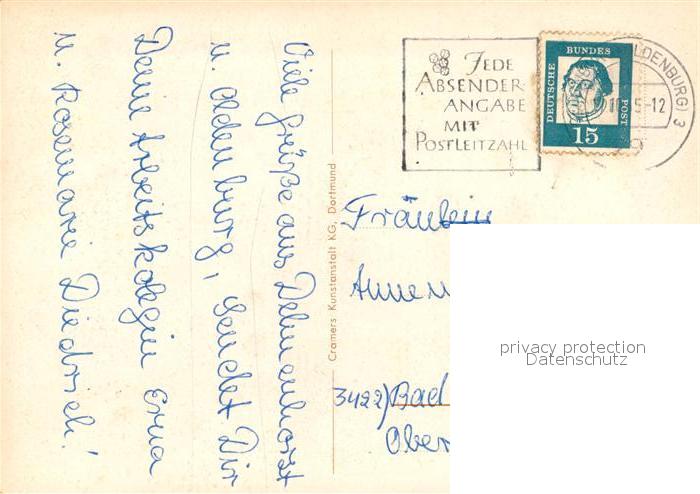 Viele Grüße aus Delmenhorst
u. Oldenburg, sendet Dir
Deine Arbeitskolegin Erna
u. Rosemarie Diedrich!
Cramers Kunstanstalt KG, Dortmund
JEDE
ABSENDER
ANGABE
MIT
POSTLEITZAHL
DEUTSCHE
BUNDES
POST
15
LDENBURG) 3
5-12
Fräulein
3422) Bad
Ober
privacy protection
Datenschutz